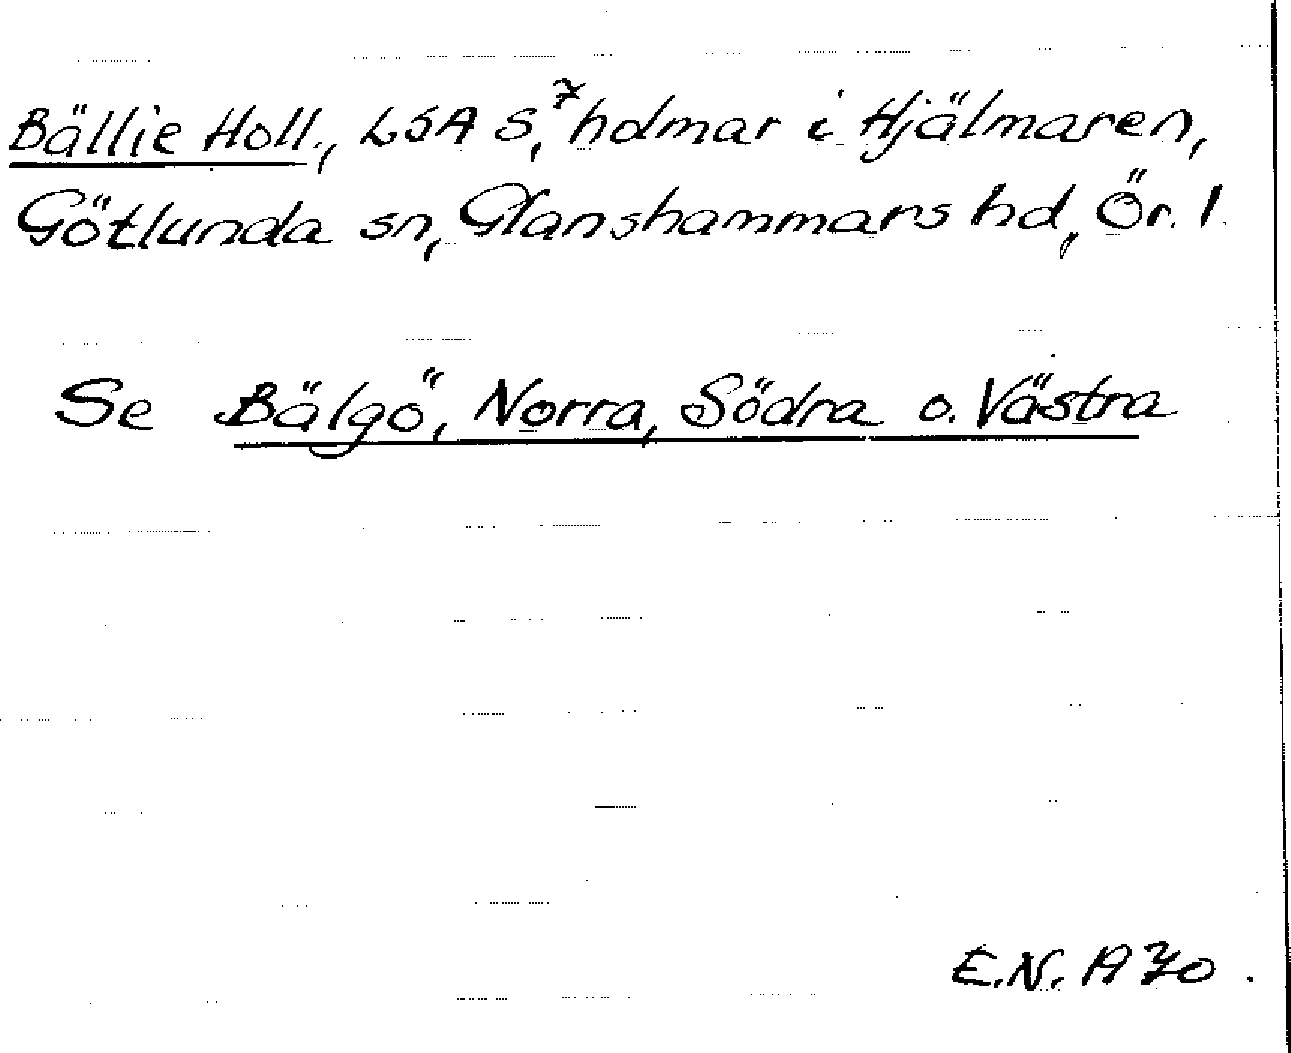 Bällie Holl., LSA S,⁷ holmar i Hjälmaren,
Götlunda sn, Glanshammars hd, Ör. l.
Se Bälgö, Norra, Södra o. Västra
E.N. 1970.